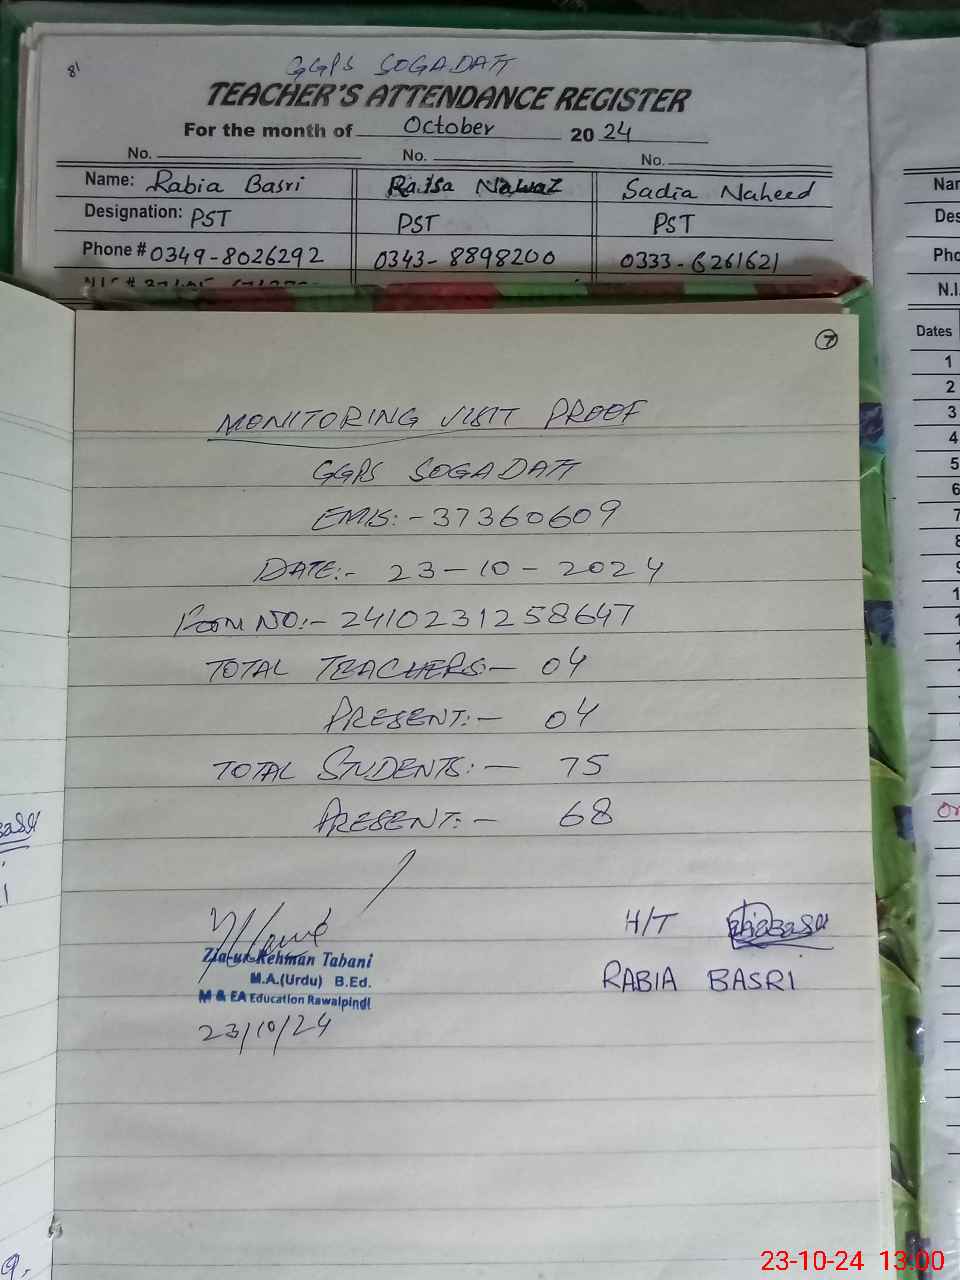 81
GGPS SOGADATT
TEACHER'S ATTENDANCE REGISTER
For the month of October 2024
No. No. No.
Name: Rabia Basri Raisa Nawaz Sadia Naheed
Designation: PST PST PST
Phone # 0349-8026292 0343-8898200 0333-6261621
7
MONITORING VISIT PROOF
GGPS SOGADATT
EMIS:-37360609
DATE:- 23-10-2024
Form NO:- 2410231258647
TOTAL TEACHERS:- 04
PRESENT:- 04
TOTAL STUDENTS:- 75
PRESENT:- 68
Zia-ur-Rehman Tabani
M.A.(Urdu) B.Ed.
M & EA Education Rawalpindi
23/10/24
H/T
RABIA BASRI
Dates
N.I.
1
2
3
4
5
6
7
23-10-24 13:00